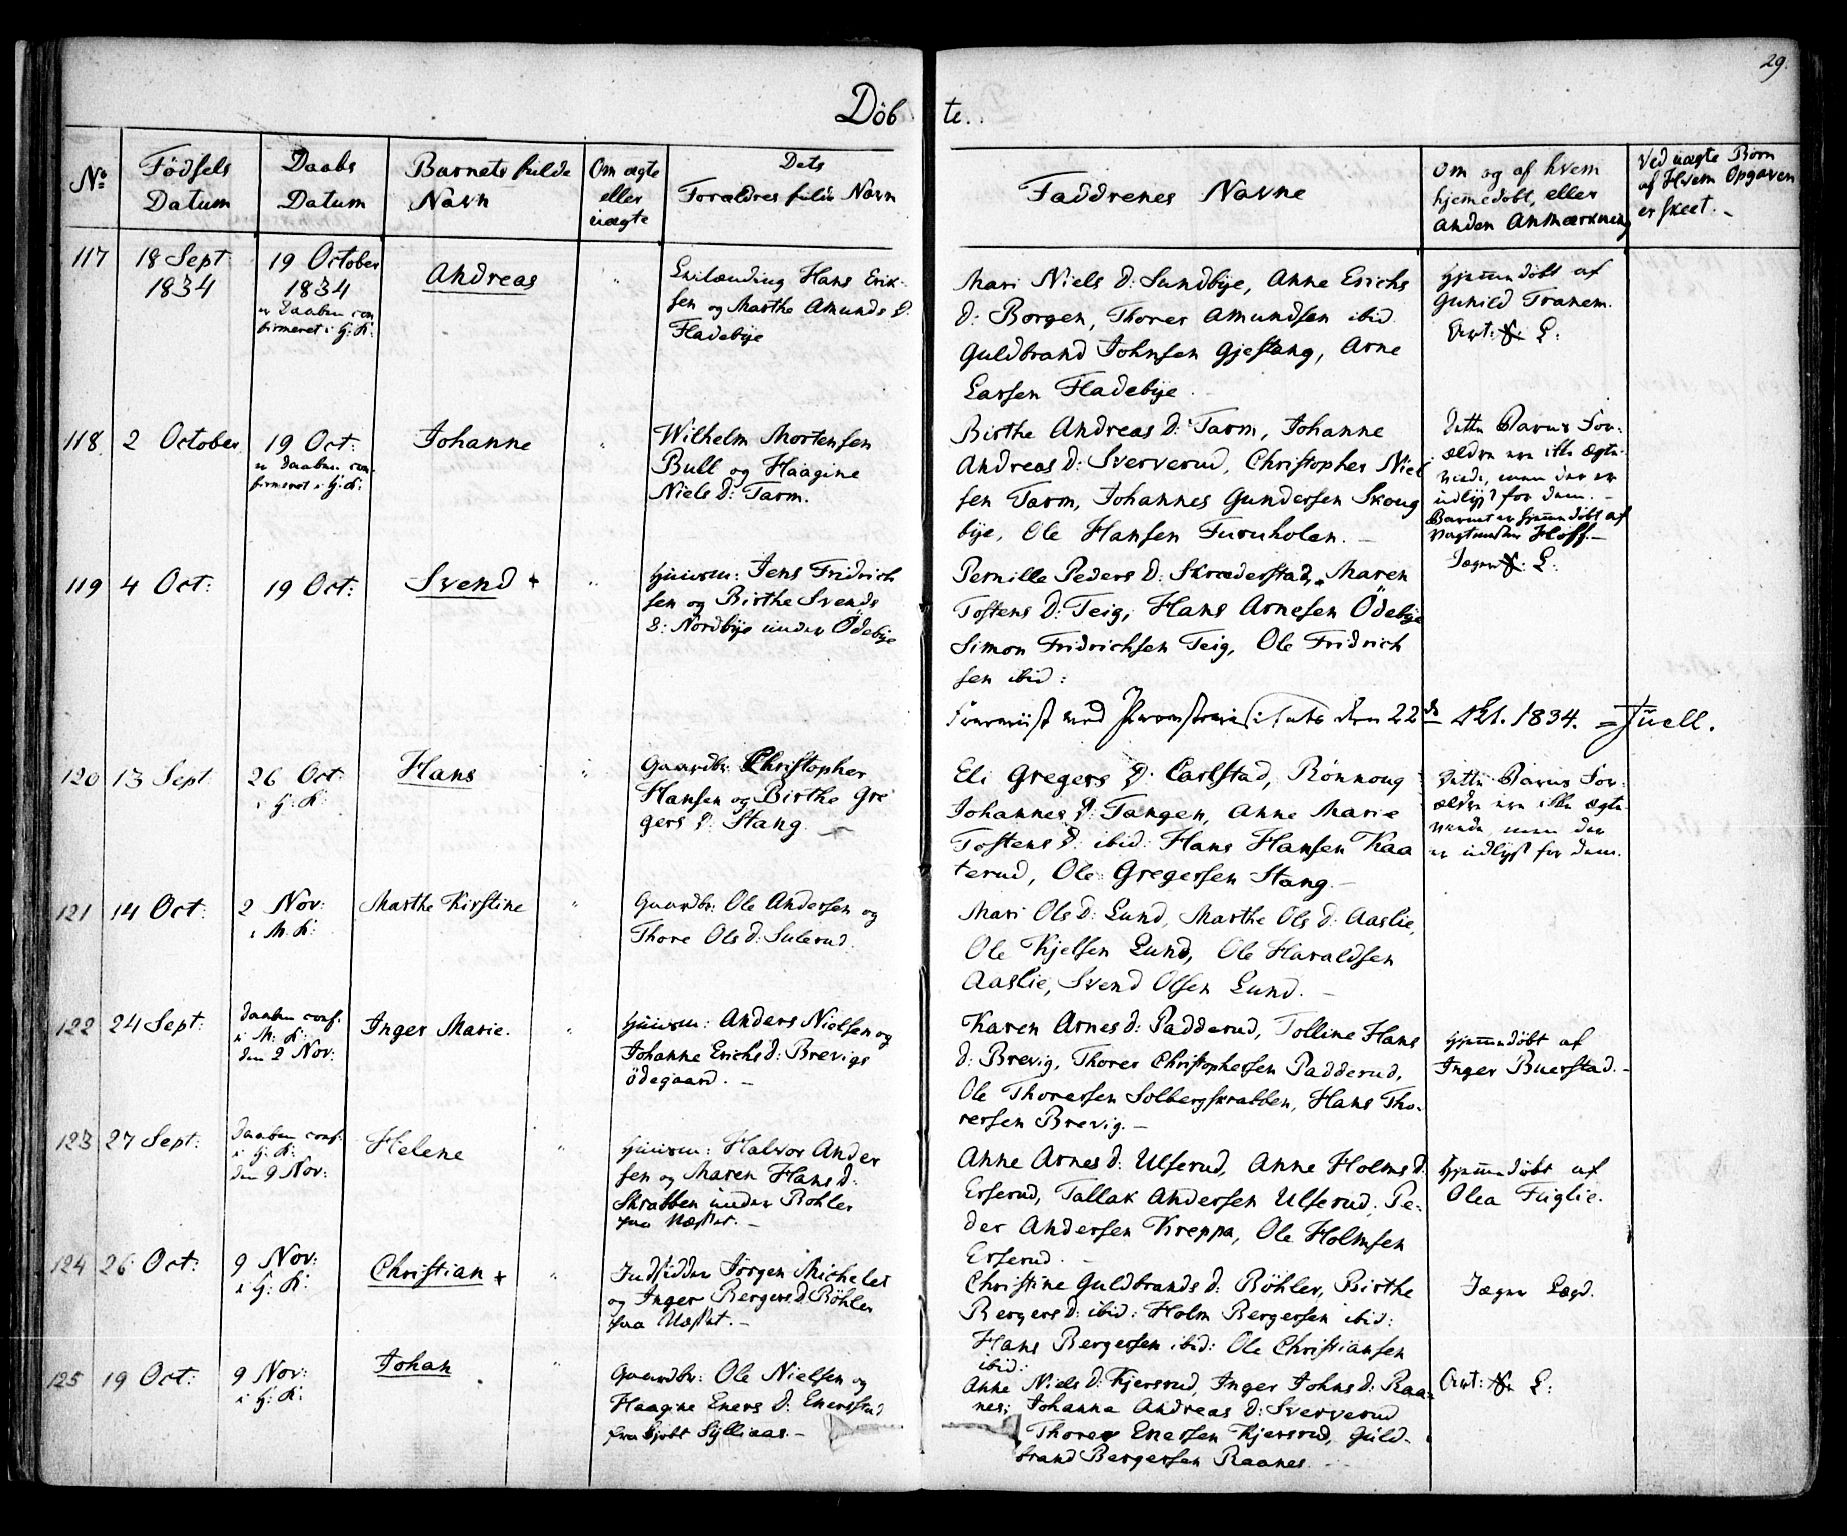 29.
Döbte.
No
Födsels Datum
Daabs Datum
Barnets fulde Navn
Om ægte eller uægte
Dets Forældres fulde Navn
Faddrenes Navne
Om og af hvem hjemmedöbt, eller anden Anmærkning
Ved uægte Börn af Hvem Opgaven er skeet.
117
18 Sept 1834
19 October 1834
er Daaben confirmeret i H: K:
Andreas
"
Hans Eriksen og Marthe Amunds D: Fladebye
Mari Niels D: Sundbye, Anne Erichs
D: Borgen, Thorer Amundsen ibid
Guldbrand Johnsen Gjestang, Arne
Larsen Fladebye
Hjemmedöbt af
Gunild Tranem.
118
2 October
19 Oct:
er Daaben confirmeret i H: K:
Johanne
"
Wilhelm Mortensen
Bull og Haagine
Niels D: Tarm.
Birthe Andreas D: Tarm, Johanne
Andreas D: Sververud, Christopher Niel
sen Tarm, Johannes Gundersen Skoug
bye, Ole Hansen Furuholen. -
Dette Barns For-
ældre ere ikke ægte-
viede, men der er
udlyst for dem. -
Barnet er hjemmedöbt af
Vagtmester Hoff. -
119
4 Oct:
19 Oct:
Svend +
"
Huusm: Jens Fridrich
sen og Birthe Svends
D: Nordbye under Ödebye
Pernille Peders D: Skræderstad, Maren
Tostens D: Teig, Hans Arnesen Ödebye
Simon Fridrichsen Teig, Ole Fridrich
sen ibid:
Jæger L:
den 22de Oct. 1834. Juell.
120
13 Sept
26 Oct:
i H: K:
Hans
"
Gaardbr: Christopher
Hansen og Birthe Gre
gers D: Stang
Eli Gregers D: Carlstad, Rönnoug
Johannes D: Tangen, Anne Marie
Tostens D: ibid: Hans Hansen Kaa
terud, Ole Gregersen Stang. -
Dette Barns For-
ældre ere ikke ægte
viede, men der
er udlyst for dem.
121
14 Oct:
2 Nov:
i M: K:
Marthe Kirstine
"
Gaardbr: Ole Andersen og
Thore Ols D: Sulerud.
Mari Ols D: Lund, Marthe Ols D: Aaslie,
Ole Kjelsen Lund, Ole Haraldsen
Aaslie, Svend Olsen Lund. -
122
24 Sept:
Daaben conf:
i M: K:
den 2 Nov:
Inger Marie.
"
Huusm: Anders Nielsen og
Johanne Erichs D: Brevigs
ödegaard. -
Karen Arnes D: Padderud, Tolline Hans
D: Brevig, Thorer Christophersen Padderud,
Ole Thoresen Solbergskrabben, Hans Tho-
rersen Brevig. -
Hjemmedöbt af
Inger Buerstad. -
123
27 Sept:
Daaben conf:
i H: K:
den 9 Nov:
Helene
"
Huusm: Halvor Ander
sen og Maren Hans D:
Skrabben under Bohler
paa Næsset. -
Anne Arnes D: Ulserud, Anne Holms D:
Erserud, Tallak Andersen Ulserud, Pe-
der Andersen Kreppa, Ole Holmsen
Erserud. -
Hjemmedöbt af
Olea Fuglie.
124
26 Oct:
9 Nov:
i H: K:
Christian +
"
Indsidder Jörgen Michelet
og Inger Bergers D: Böhler
paa Næsset. -
Christine Guldbrands D: Böhler, Birthe
Bergers D: ibid: Holm Bergersen ibid:
Hans Bergersen ibid: Ole Christiansen
ibid:
Jæger Lægd.
125
19 Oct:
9 Nov:
i H: K:
Johan
"
Gaardbr: Ole Nielsen og
Haagine Eners D: Enersstad
Sylliaas. -
Anne Niels D: Kjersrud, Inger Johns D: Raa-
nes, Johanna Andreas D: Sververud
Thorer Enersen Kjersrud, Guld-
brand Bergersen Raanes. -